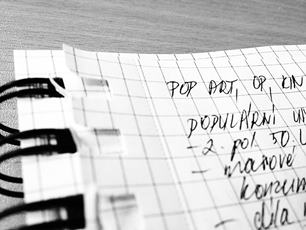 POP ART, OP, KIN
POPULÁRNÍ UM
- 2. pol. 50. l
- masové
konzum
- díla